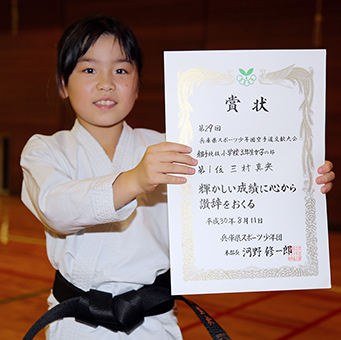 賞状
第29回
兵庫県スポーツ少年団空手道交歓大会
組手競技小学校3年生女子の部
第1位 三村真央
輝かしい成績に心から
讃辞をおくる
平成30年8月11日
兵庫県スポーツ少年団
本部長 河野修一郎